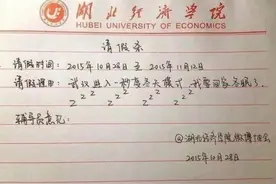 湖北经济学院
HUBEI UNIVERSITY OF ECONOMICS
请假条
请假时间：2015年10月28日至2015年11月12日
请假理由：武汉进入一秒变冬天模式，我要回家冬眠了.
z z z z z z z z z z z z
辅导员意见：
@湖北经济学院微博协会
2015年10月28日